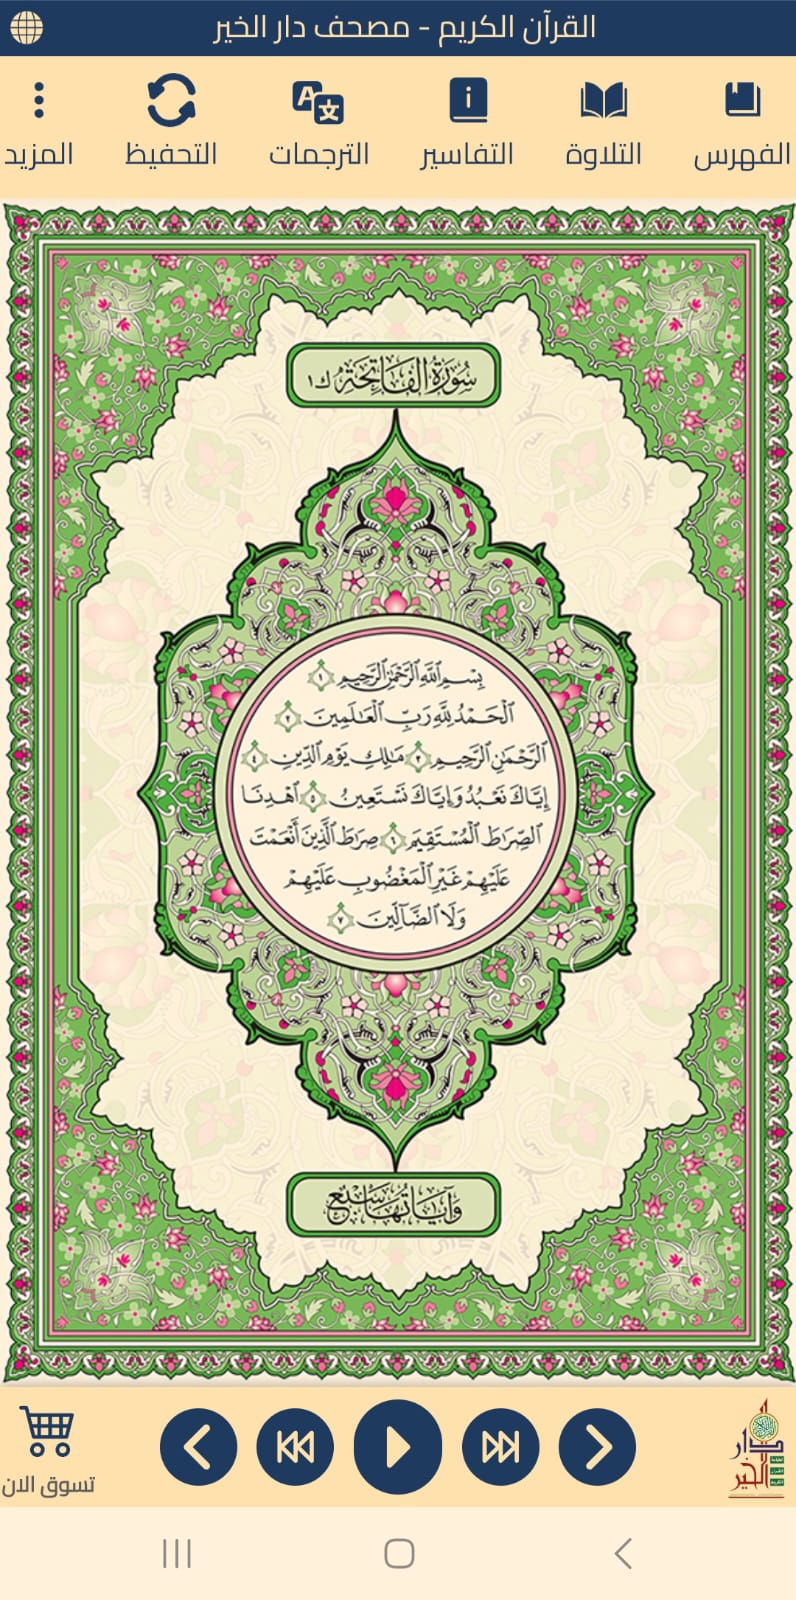 القرآن الكريم - مصحف دار الخير
الفهرس
التلاوة
التفاسير
الترجمات
التحفيظ
المزيد
سُورَةُ الفَاتِحَةِ ك ١
بِسْمِ ٱللَّهِ ٱلرَّحْمَٰنِ ٱلرَّحِيمِ ١
ٱلْحَمْدُ لِلَّهِ رَبِّ ٱلْعَٰلَمِينَ ٢
ٱلرَّحْمَٰنِ ٱلرَّحِيمِ ٣ مَٰلِكِ يَوْمِ ٱلدِّينِ ٤
إِيَّاكَ نَعْبُدُ وَإِيَّاكَ نَسْتَعِينُ ٥ ٱهْدِنَا
ٱلصِّرَٰطَ ٱلْمُسْتَقِيمَ ٦ صِرَٰطَ ٱلَّذِينَ أَنْعَمْتَ
عَلَيْهِمْ غَيْرِ ٱلْمَغْضُوبِ عَلَيْهِمْ
وَلَا ٱلضَّآلِّينَ ٧
وَآيَاتُهَا سَبْعٌ
دار
الخير
تسوق الان